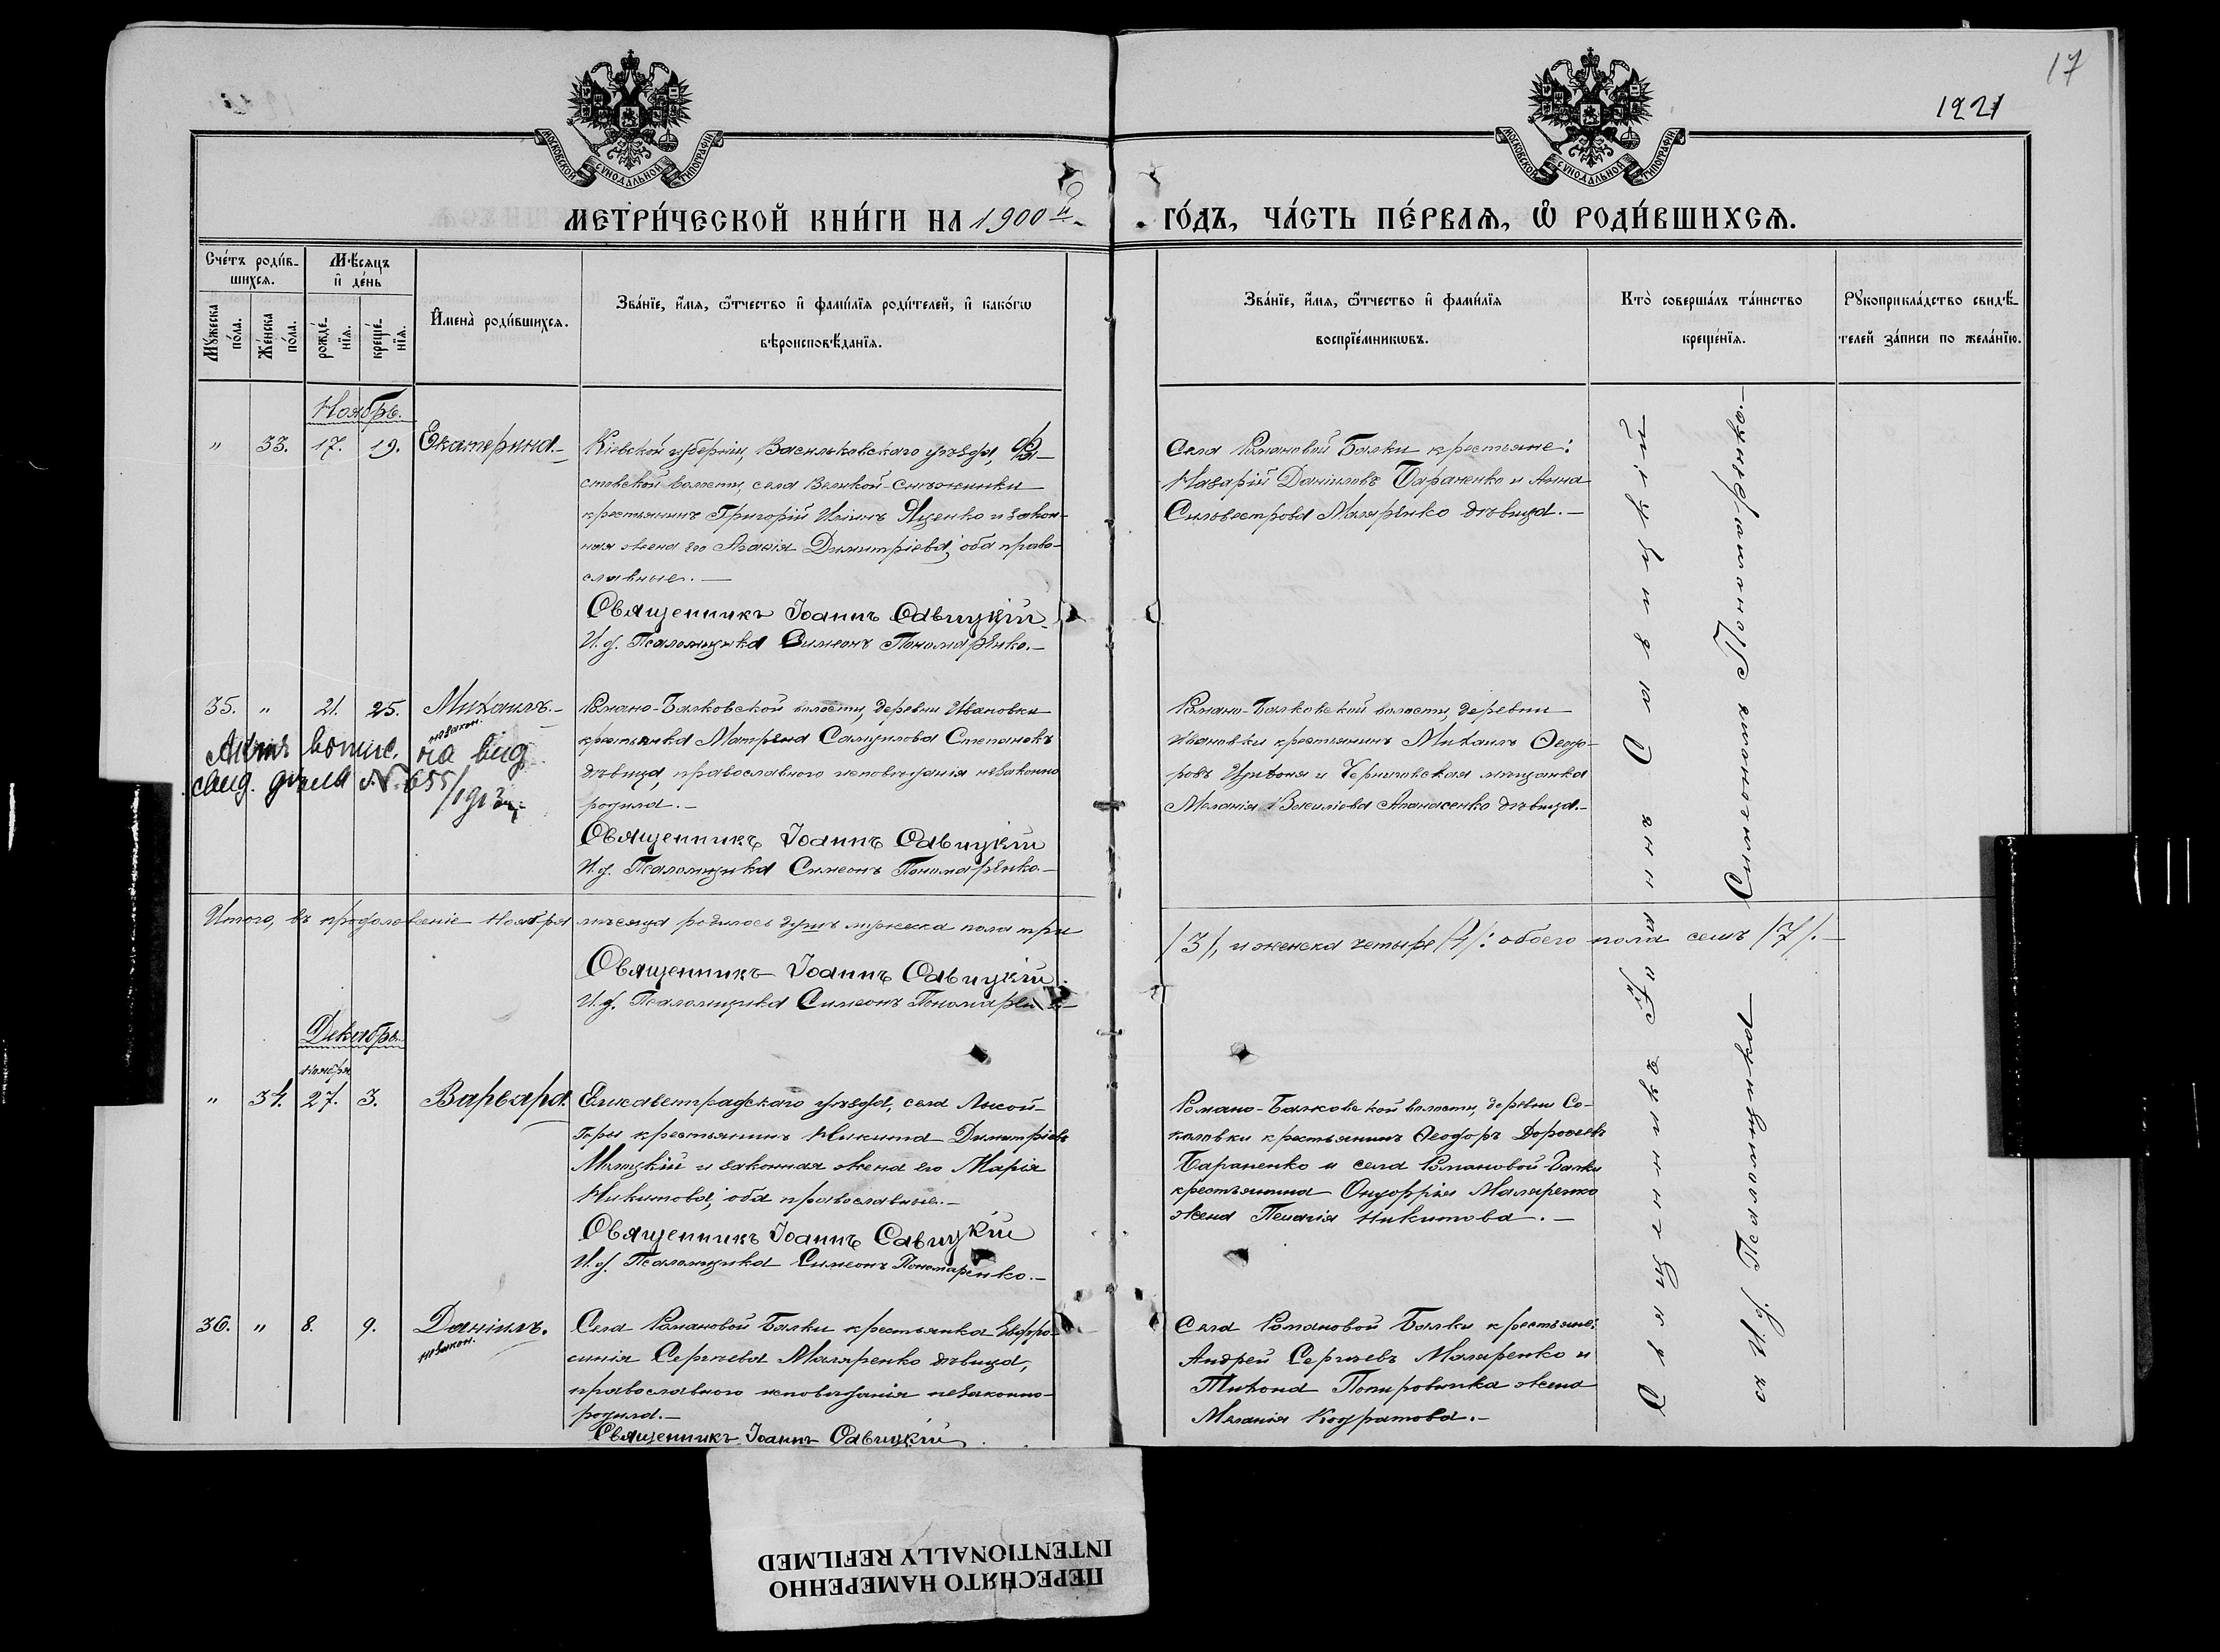 17
1221
МОСКОВСКОЙ СѴНОДАЛЬНОЙ ТИПОГРАФІИ
МОСКОВСКОЙ СѴНОДАЛЬНОЙ ТИПОГРАФІИ
МЕТРИ́ЧЕСКОЙ КНИ́ГИ НА 1900й
ГО́ДЪ, ЧА́СТЬ ПЕ́РВАѦ, Ѡ РОДИ́ВШИХСѦ.
Сче́тъ роди́в-
шихсѧ.
Мѣ́сѧцъ
и де́нь
Мꙋ́жеска
по́ла.
Же́нска
по́ла.
рожде́-
нїѧ.
креще́-
нїѧ.
И҆мена̀ роди́вшихсѧ.
Зва́нїе, и҆́мѧ, ѻ҆́тчество и҆ фами́лїѧ роди́телей, и҆ како́гѡ
вѣроисповѣ́данїѧ.
Зва́нїе, и҆́мѧ, ѻ҆́тчество и҆ фами́лїѧ
воспрїе́мникѡвъ.
Кто̀ соверша́лъ та́инство
креще́нїѧ.
Рꙋкоприкла́дство свидѣ́-
телей за́писи по жела́нїю.
Ноябрь.
" 33. 17. 19. Екатерина.-
Кіевской губерніи, Васильковскаго уѣзда, Фа-
стовской волости, села Великой-Снѣжинки
крестьянинъ Григорій Иліинъ Яценко и закон-
ная жена его Агаѳія Димитріева, оба право-
славные.-
Священникъ Іоаннъ Савицкій.
И. д. Псаломщика Симеонъ Пономаренко.-
Села Романовой Балки крестьяне:
Назарій Даніиловъ Бараненко и Анна
Сильвестрова Маляренко дѣвица.-
35. " 21. 25. Михаилъ.-
незакон.
Актъ вопис. на вид
слѣд. дѣла № 655/1913 г.
Романо-Балковской волости, деревни Ивановки
крестьянка Матрена Самуилова Степанокъ
дѣвица, православного исповѣданія незаконно
родила.-
Священникъ Іоаннъ Савицкій
И. д. Псаломщика Симеонъ Пономаренко.-
Романо-Балковской волости, деревни
Ивановки крестьянинъ Михаилъ Ѳеодо-
ровъ и Черниговская мѣщанка
Меланія Василіова Апанасенко дѣвица.-
Итого, въ продолженіе Ноября мѣсяца родилось душъ мужеска пола три
/3/, и женска четыре /4/: обоего пола семь /7/.-
Священникъ Іоаннъ Савицкій.
И. д. Псаломщика Симеонъ Пономаренко-
Декабрь.
ноября
" 34. 27. 3. Варвара.
Елисаветградскаго уѣзда, села Лысой-
Горы крестьянинъ Никита Димитріевъ
и законная жена его Марія
Никитова, оба православные.-
Священникъ Іоаннъ Савицкій
И. д. Псаломщика Симеонъ Пономаренко.-
Романо-Балковской волости, деревни Со-
коловки крестьянинъ Ѳеодоръ Дороѳеевъ
Бараненко и села Романовой-Балки
крестьянина Онуфрія Маляренко
жена Пелагія Никитова.-
36. " 8. 9. Даніилъ.
незакон.
Села Романовой Балки крестьянка Евфро-
синія Сергѣева Маляренко дѣвица,
православного исповѣданія незаконно-
родила.-
Священникъ Іоаннъ Савицкій
Села Романовой Балки крестьяне:
Андрей Сергѣевъ Маляренко и
Тихона жена
Меланія Кодратова.-
Священникъ Іоаннъ Савицкій
съ И. д. Псаломщика Симеономъ Пономаренко.-
ПЕРЕСНЯТО НАМЕРЕННО
INTENTIONALLY REFILMED